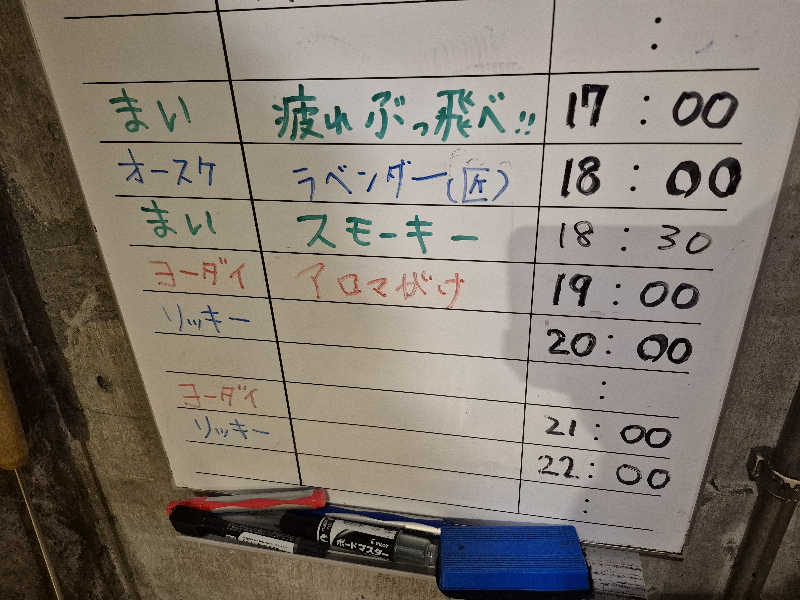 :
まい 疲れぶっ飛べ!! 17:00
オースケ ラベンダー(匠) 18:00
まい スモーキー 18:30
ヨーダイ アロマがけ 19:00
リッキー 20:00
:
ヨーダイ 21:00
リッキー 22:00
:
ボードマスター
PILOT